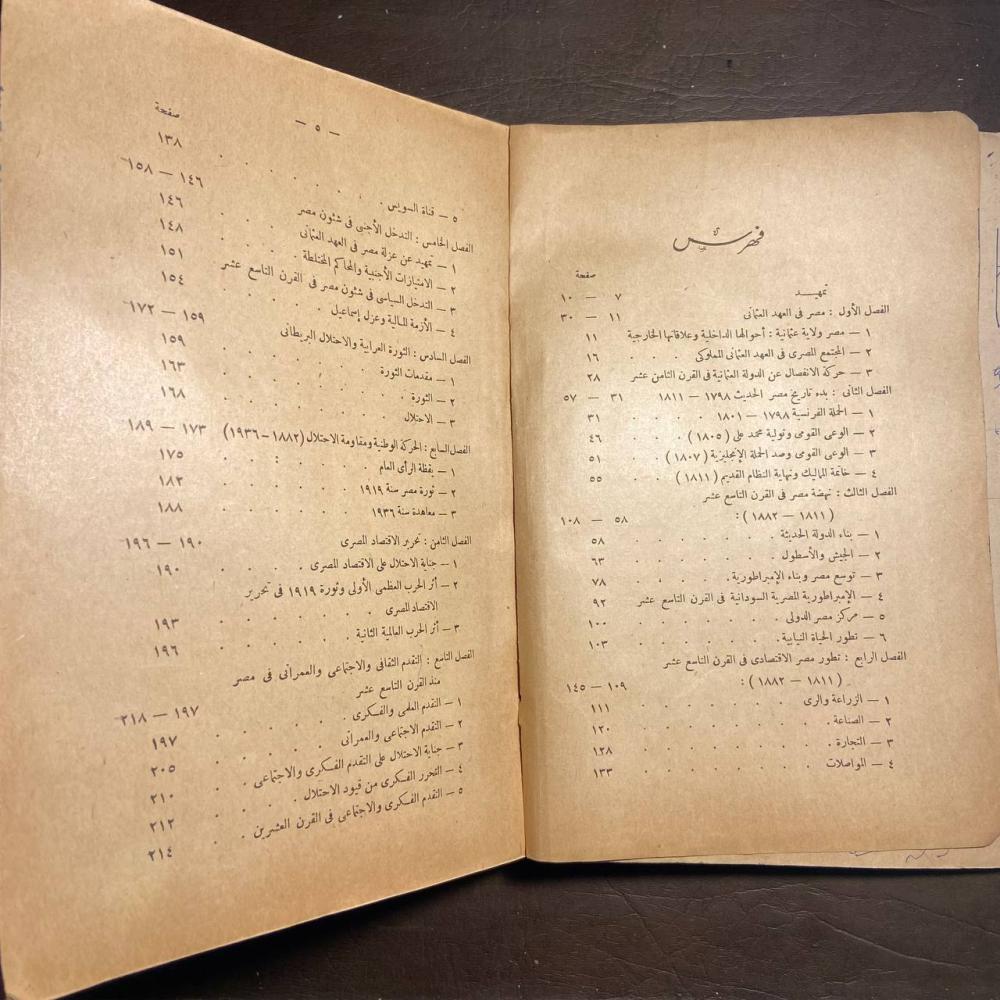 فهرس
صفحة
تمهيد ٧ — ١٠
الفصل الأول : مصر فى العهد العثمانى ١١ — ٣٠
١ — مصر ولاية عثمانية : أحوالها الداخلية وعلاقاتها الخارجية ١١
٢ — المجتمع المصرى فى العهد العثمانى المملوكى . . . ١٦
٣ — حركة الانفصال عن الدولة العثمانية فى القرن الثامن عشر ٢٨
الفصل الثانى : بدء تاريخ مصر الحديث ١٧٩٨ — ١٨١١ ٣١ — ٥٧
١ — الحملة الفرنسية ١٧٩٨ — ١٨٠١ . . . . ٣١
٢ — الوعى القومى وتولية محمد على ( ١٨٠٥ ) . . . ٤٦
٣ — الوعى القومى وصد الحملة الإنجليزية ( ١٨٠٧ ) . . ٥١
٤ — خاتمة المماليك ونهاية النظام القديم ( ١٨١١ ) . . ٥٥
الفصل الثالث : نهضة مصر فى القرن التاسع عشر
( ١٨١١ — ١٨٨٢ ) : ٥٨ — ١٠٨
١ — بناء الدولة الحديثة . . . . . . ٥٨
٢ — الجيش والأسطول . . . . . . ٦٣
٣ — توسع مصر وبناء الإمبراطورية . . . . ٧٨
٤ — الإمبراطورية المصرية السودانية فى القرن التاسع عشر ٩٢
٥ — مركز مصر الدولى . . . . . . ١٠٠
٦ — تطور الحياة النيابية . . . . . . ١٠٣
الفصل الرابع : تطور مصر الاقتصادى فى القرن التاسع عشر
( ١٨١١ — ١٨٨٢ ) : ١٠٩ — ١٤٥
١ — الزراعة والرى . . . . . . ١١١
٢ — الصناعة . . . . . . . ١٢٠
٣ — التجارة . . . . . . . ١٢٨
٤ — المواصلات . . . . . . . ١٣٣
— ٥ —
صفحة
٥ — قناة السويس . . . . . . . ١٣٨
الفصل الخامس : التدخل الأجنبى فى شئون مصر ١٤٦ — ١٥٨
١ — تمهيد عن عزلة مصر فى العهد العثمانى . . ١٤٦
٢ — الامتيازات الأجنبية والمحاكم المختلطة . . . ١٤٨
٣ — التدخل السياسى فى شئون مصر فى القرن التاسع عشر ١٥١
٤ — الأزمة المالية وعزل إسماعيل . . . . ١٥٤
الفصل السادس : الثورة العرابية والاحتلال البريطانى ١٥٩ — ١٧٢
١ — مقدمات الثورة . . . . . . ١٥٩
٢ — الثورة . . . . . . . ١٦٣
٣ — الاحتلال . . . . . . . ١٦٨
الفصل السابع : الحركة الوطنية ومقاومة الاحتلال (١٨٨٢ – ١٩٣٦) ١٧٣ — ١٨٩
١ — يقظة الرأى العام . . . . . . ١٧٥
٢ — ثورة مصر سنة ١٩١٩ . . . . . . ١٨٢
٣ — معاهدة سنة ١٩٣٦ . . . . . . ١٨٨
الفصل الثامن : تحرير الاقتصاد المصرى ١٩٠ — ١٩٦
١ — جناية الاحتلال على الاقتصاد المصرى . . . . ١٩٠
٢ — أثر الحرب العظمى الأولى وثورة ١٩١٩ فى تحرير
الاقتصاد المصرى . . . . . . ١٩٣
٣ — أثر الحرب العالمية الثانية . . . . . ١٩٦
الفصل التاسع : التقدم الثقافى والاجتماعى والعمرانى فى مصر
منذ القرن التاسع عشر ١٩٧ — ٢١٨
١ — التقدم العلمى والفكرى . . . . . ١٩٧
٢ — التقدم الاجتماعى والعمرانى . . . . ٢٠٥
٣ — جناية الاحتلال على التقدم الفكرى والاجتماعى . . ٢١٠
٤ — التحرر الفكرى من قيود الاحتلال . . . . ٢١٢
٥ — التقدم الفكرى والاجتماعى فى القرن العشرين . . ٢١٤